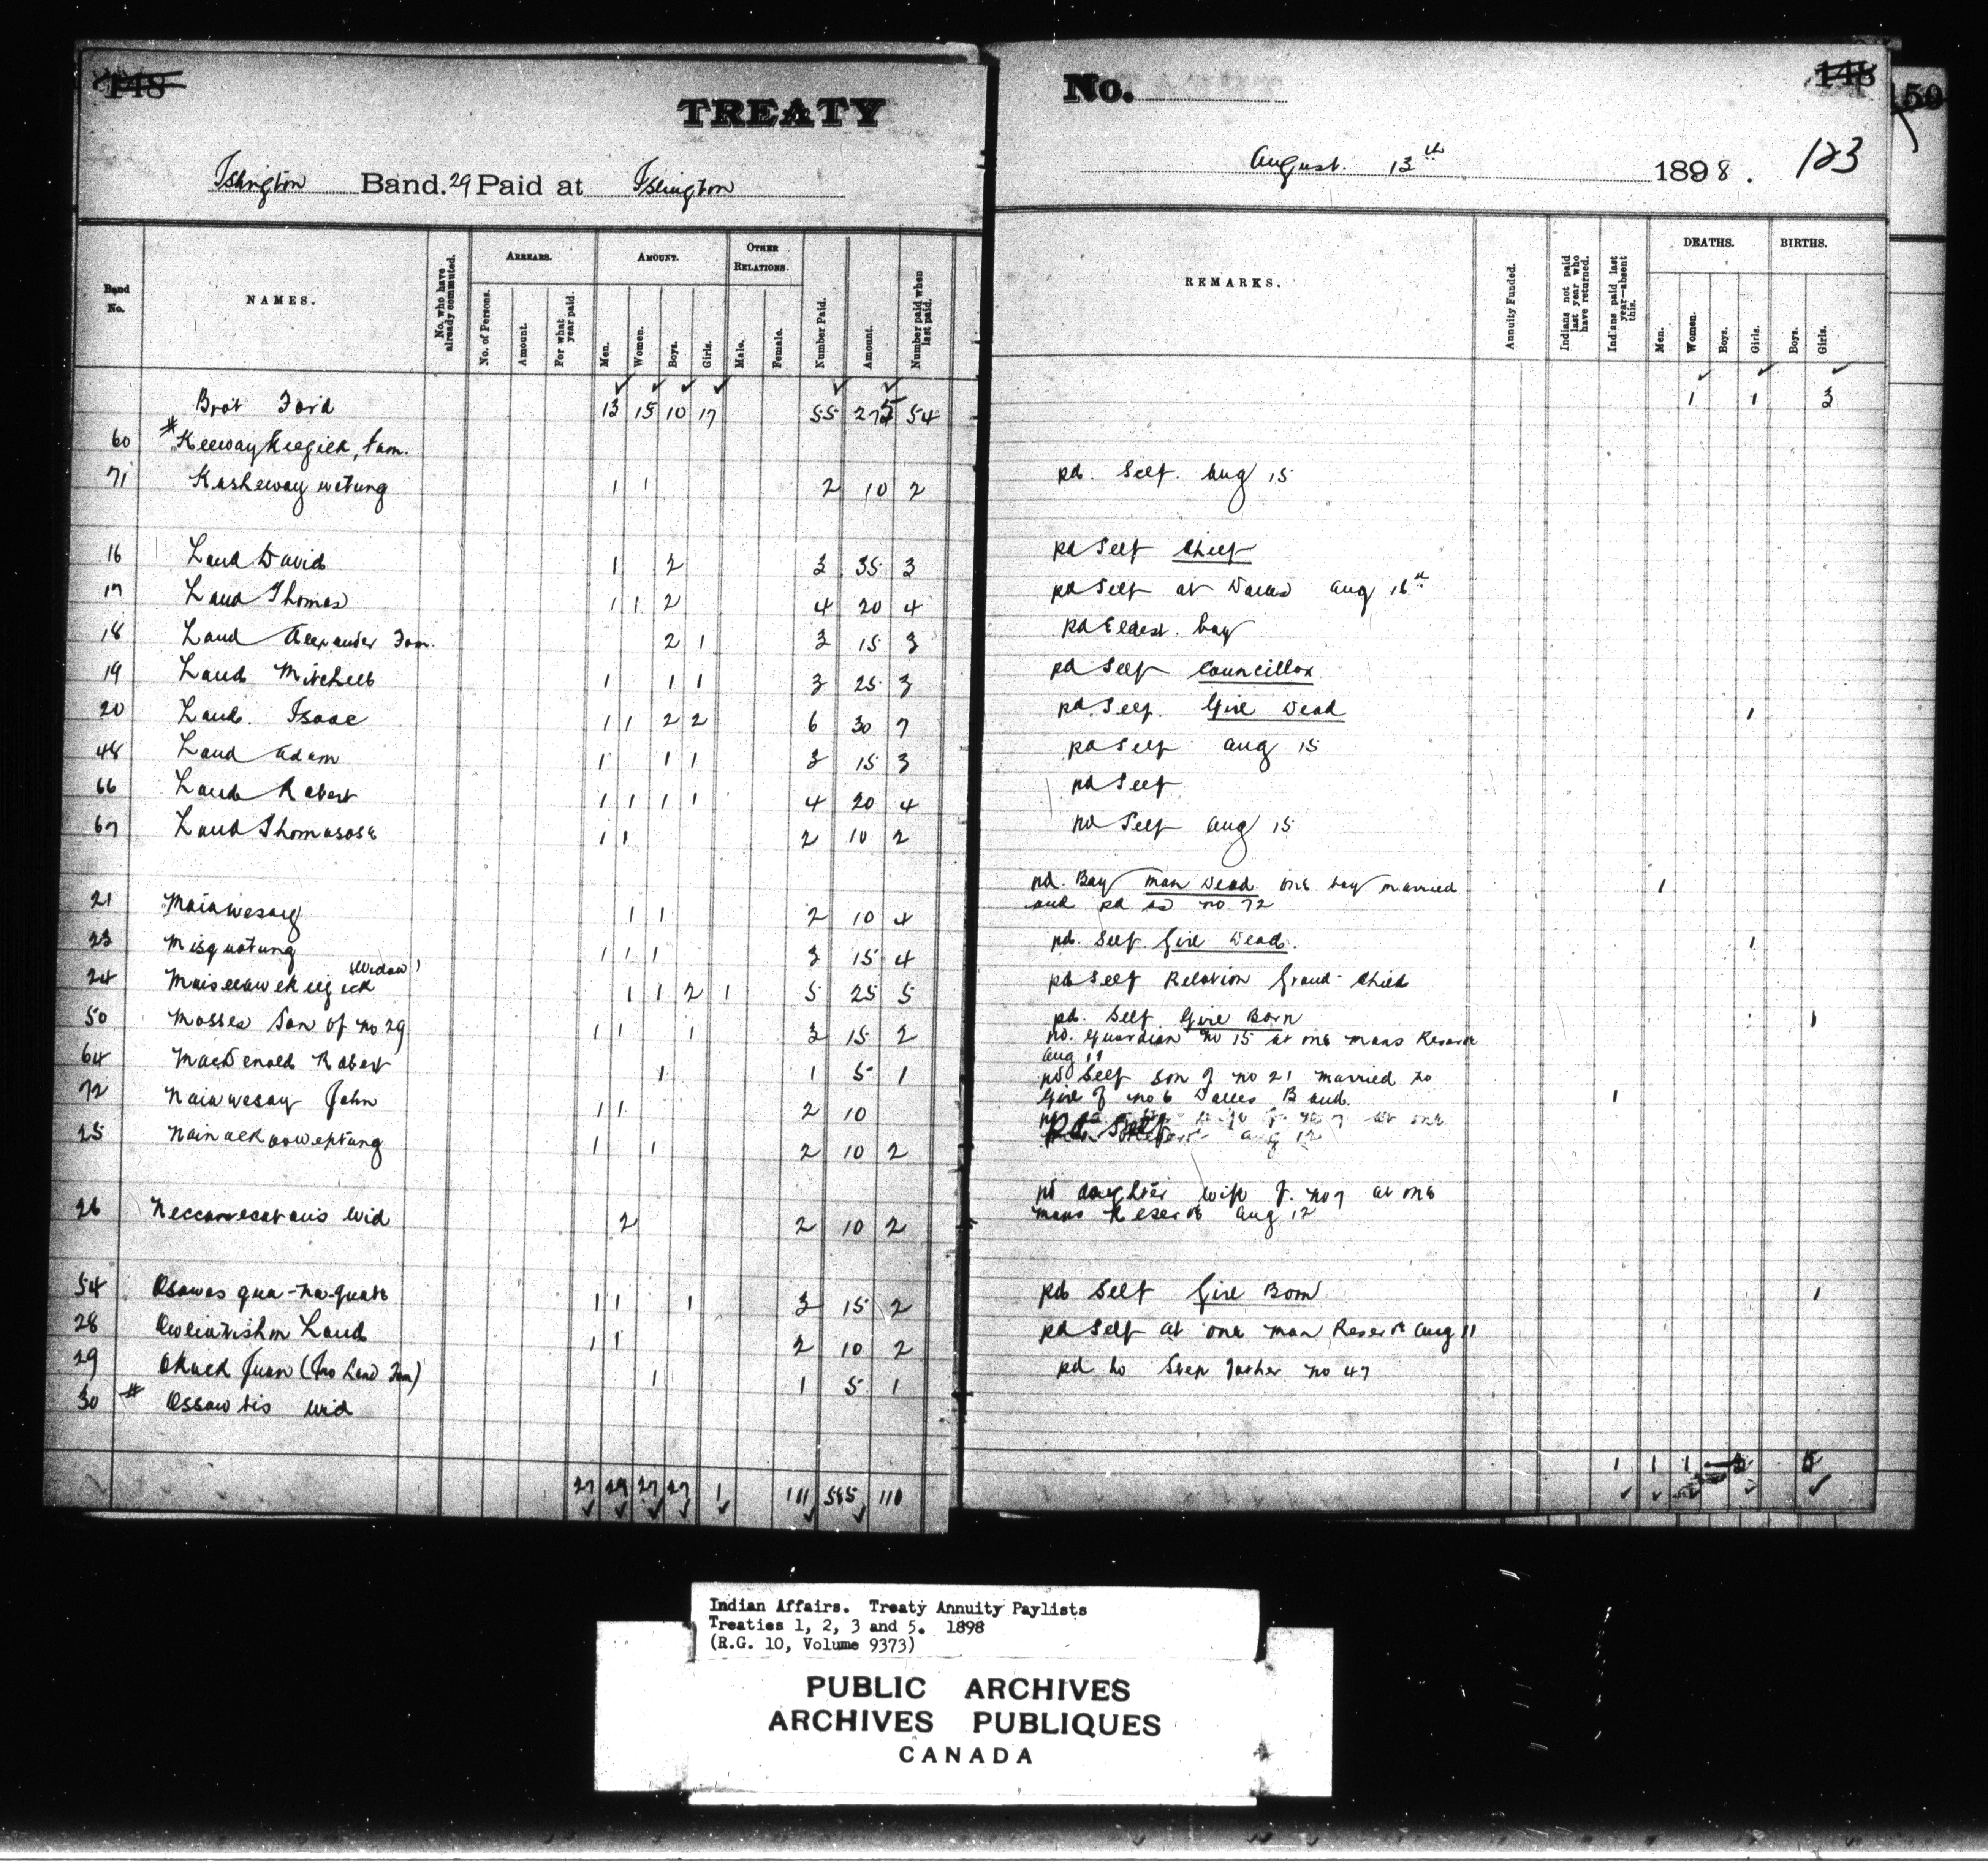 148
TREATY
Islington Band. 29 Paid at Islington
Band No.
NAMES.
No. who have already commuted.
ARREARS.
No. of Persons.
Amount.
For what year paid.
AMOUNT.
Men.
Women.
Boys.
Girls.
OTHER RELATIONS.
Male.
Female.
Number Paid.
Amount.
Number paid when last paid.
Brot Ford 13 15 10 17 55 275 54
60 # Keewaykeegick, fam.
71 Kasheway wetung 1 1 2 10 2
16 Land David 1 2 3 35 3
17 Land Thomas 1 1 2 4 20 4
18 Land Alexander Fam. 2 1 3 15 3
19 Land Mitchell 1 1 1 3 25 3
20 Land. Isaac 1 1 2 2 6 30 7
48 Land Adam 1 1 1 3 15 3
66 Land Robert 1 1 1 1 4 20 4
67 Land Thomasose 1 1 2 10 2
21 1 1 2 10 4
23 Misquotung 1 1 1 3 15 4
24 Widow 1 1 2 1 5 25 5
50 Mosses Son of no 29 1 1 1 3 15 2
64 MacDonald Robert 1 1 5 1
72 Naiawesay John 1 1 2 10
25 1 1 2 10 2
26 Wid 2 2 10 2
54 Osawas qua-na-quab 1 1 1 3 15 2
28 Land 1 1 2 10 2
29 (Jno Land Fam) 1 1 5 1
30 # Ossawtis Wid
27 29 27 27 1 111 585 110
No.
148
150
August. 13th 1898. 123
REMARKS.
Annuity Funded.
Indians not paid last year who have returned.
Indians paid last year—absent this.
DEATHS.
Men.
Women.
Boys.
Girls.
BIRTHS.
Boys.
Girls.
1 1 3
pd. Self. Aug 15
pd Self Chief
pd Self at Dalles Aug 16th
pd Eldest. boy
pd Self Councillor
pd. Self. Girl Dead 1
pd Self Aug 15
pd Self
pd Self Aug 15
pd. Boy man Dead one boy married 1
and pd as no 72
pd. Self. Girl Dead. 1
pd Self Relation Grand-Child
pd. Self Girl Born 1
pd. Guardian no 15 at one mans Reserve
Aug 11
pd Self Son of no 21 married to
Girl of no 6 Dalles Band. 1
Pd. Self Aug 12
pd daughter wife of no 7 at one
mans Reserve Aug 12
pd Self Girl Born 1
pd Self at one man Reserve Aug 11
pd to Step father no 47
1 1 1 5
Indian Affairs. Treaty Annuity Paylists
Treaties 1, 2, 3 and 5. 1898
(R.G. 10, Volume 9373)
PUBLIC ARCHIVES
ARCHIVES PUBLIQUES
CANADA